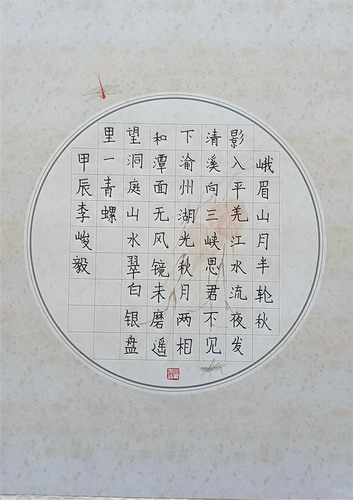 峨眉山月半轮秋
影入平羌江水流夜发
清溪向三峡思君不见
下渝州湖光秋月两相
和潭面无风镜未磨遥
望洞庭山水翠白银盘
里一青螺
甲辰李峻毅